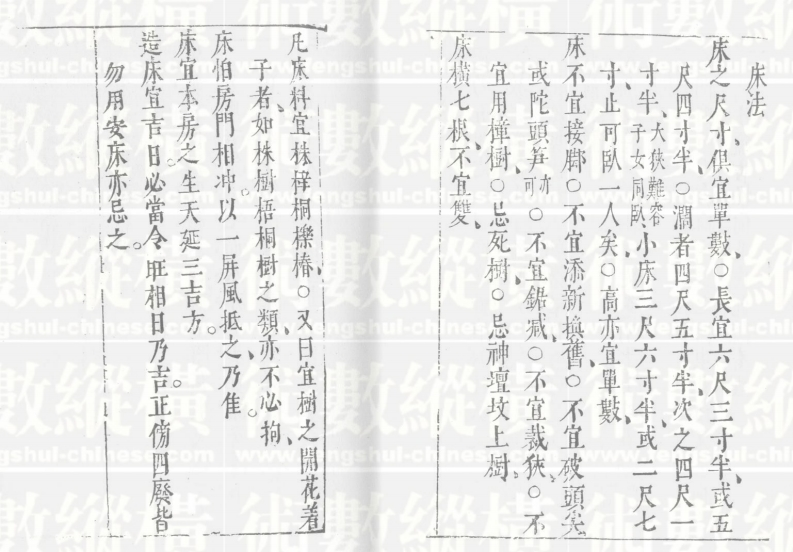 床法
床之尺寸俱宜單數○長宜六尺三寸半或五
尺四寸半○濶者四尺五寸半次之四尺一
寸半太狹難容子女同臥小床三尺六寸半或二尺七
寸止可臥一人矣○高亦宜單數
床不宜接脚○不宜添新換舊○不宜破頭尖
或陀頭笋亦可○不宜鋸減○不宜裁狹○不
宜用樟樹○忌死樹○忌神壇坟上樹
床橫七根不宜雙
凡床料宜株梓桐櫟椿○又曰宜樹之開花着
子者如株樹梧桐樹之類亦不必拘
床怕房門相冲以一屏風抵之乃隹
床宜本房之生天延三吉方
造床宜吉日必當令旺相日乃吉正傍四廢皆
勿用安床亦忌之